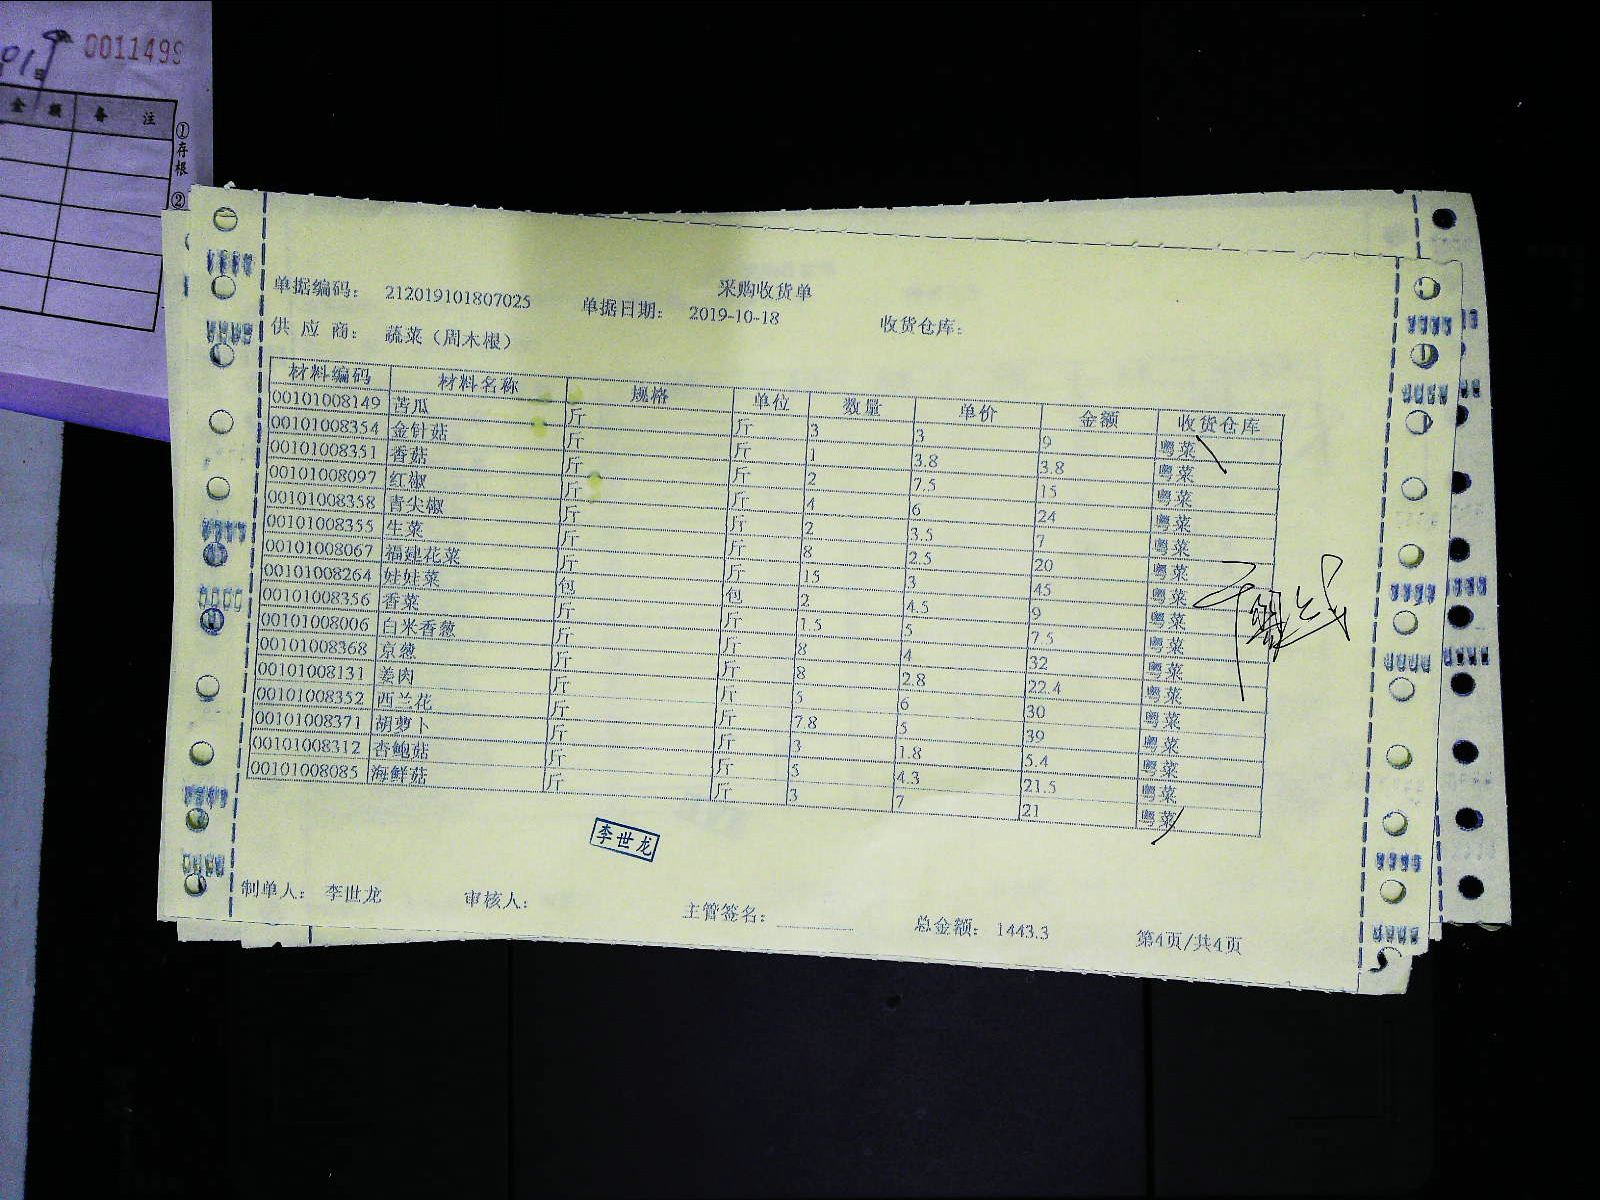 0011499
金 额 备 注
①存根 ②
采购收货单
单据编码： 212019101807025 单据日期： 2019-10-18 收货仓库：
供 应 商： 蔬菜（周木根）
材料编码 材料名称 规格 单位 数量 单价 金额 收货仓库
00101008149 苦瓜 斤 斤 3 3 9 粤菜
00101008354 金针菇 斤 斤 1 3.8 3.8 粤菜
00101008351 香菇 斤 斤 2 7.5 15 粤菜
00101008097 红椒 斤 斤 4 6 24 粤菜
00101008358 青尖椒 斤 斤 2 3.5 7 粤菜
00101008355 生菜 斤 斤 8 2.5 20 粤菜
00101008067 福建花菜 斤 斤 15 3 45 粤菜
00101008264 娃娃菜 包 包 2 4.5 9 粤菜
00101008356 香菜 斤 斤 1.5 5 7.5 粤菜
00101008006 白米香葱 斤 斤 8 4 32 粤菜
00101008368 京葱 斤 斤 8 2.8 22.4 粤菜
00101008131 姜肉 斤 斤 5 6 30 粤菜
00101008352 西兰花 斤 斤 7.8 5 39 粤菜
00101008371 胡萝卜 斤 斤 3 1.8 5.4 粤菜
00101008312 杏鲍菇 斤 斤 5 4.3 21.5 粤菜
00101008085 海鲜菇 斤 斤 3 7 21 粤菜
李世龙
制单人： 李世龙 审核人： 主管签名： 总金额： 1443.3 第4页/共4页